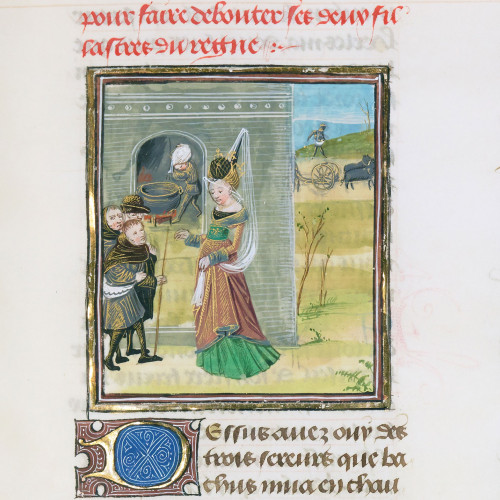 pour faire debouter ses deux fil
lastres du regne
Dessus auez ouy des
trois sereurs que ba
chus mua en chau